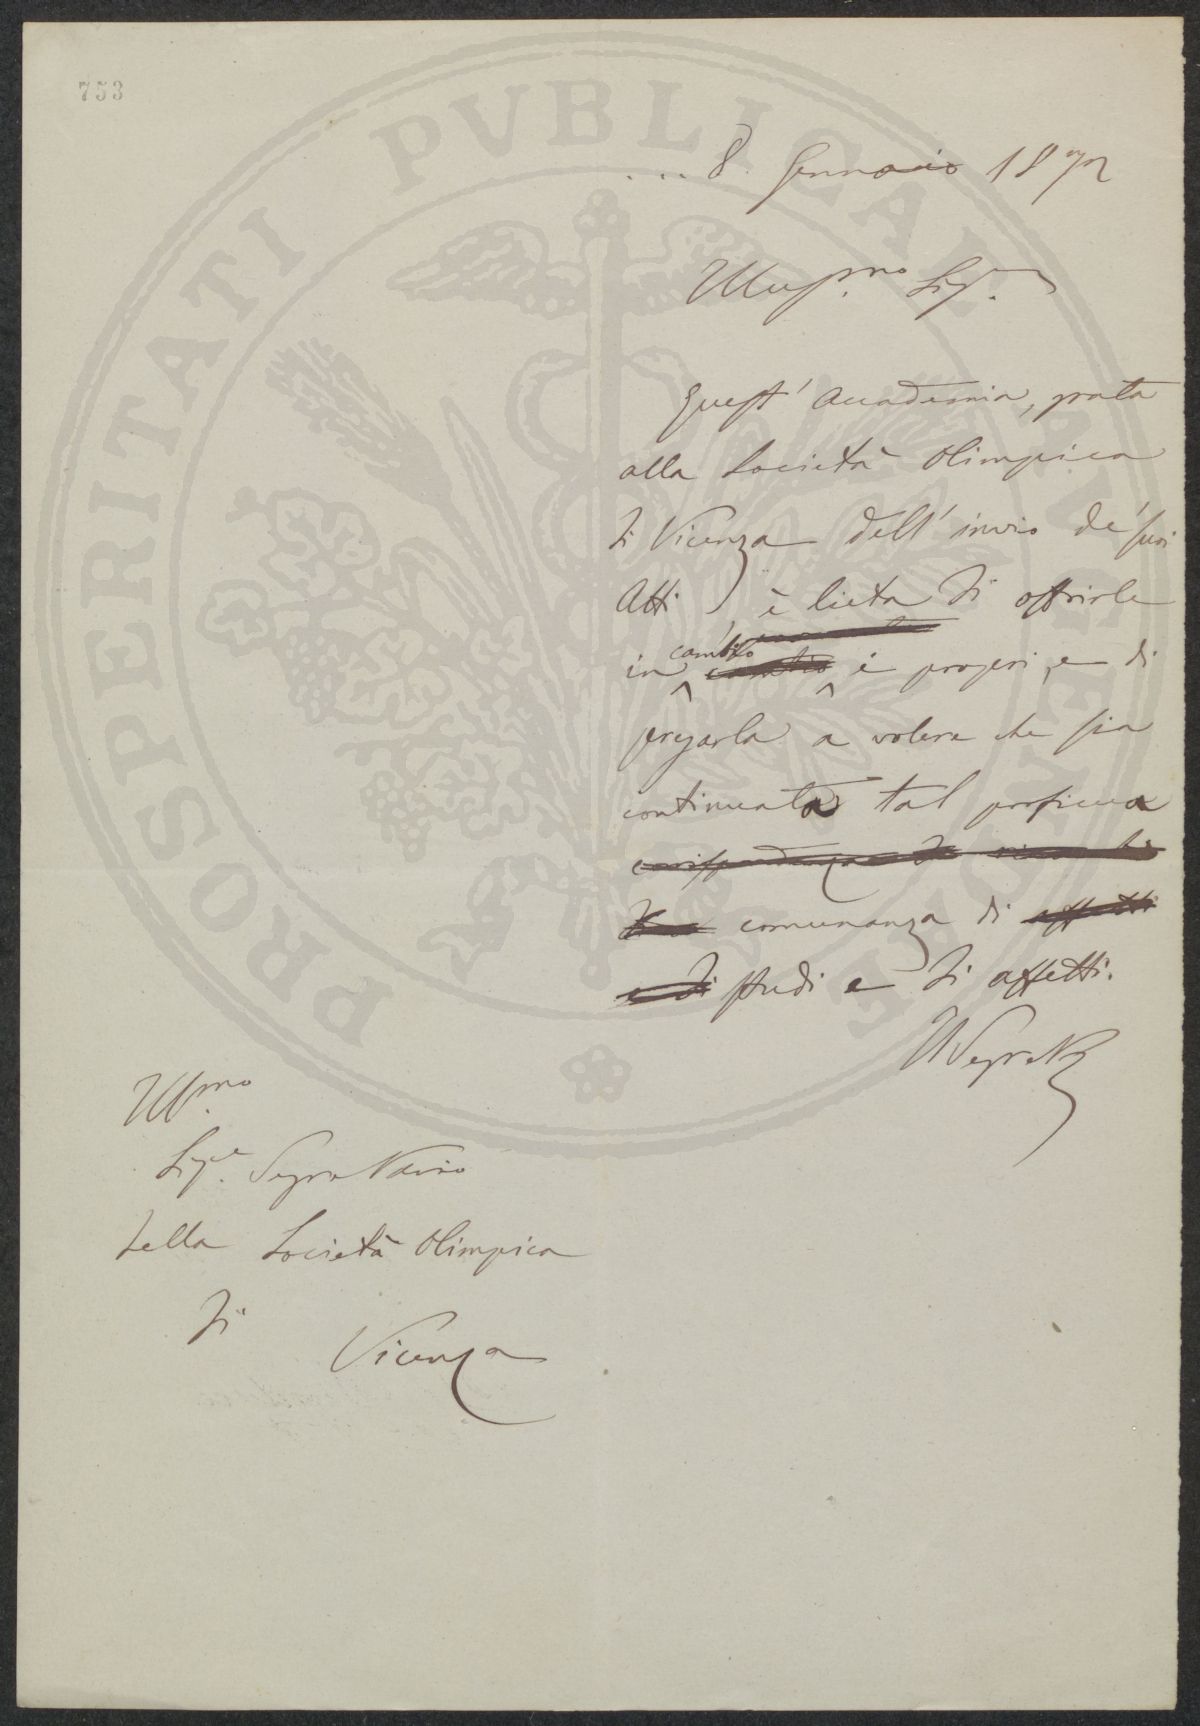 753
PROSPERITATI PVBLICAE AVGENDAE
... 8. Gennaio 1872
Illus.mo Sig.r
Quest' Accademia, grata
alla Società Olimpica
di Vicenza dell' invio de' suoi
Atti è lieta di offrirle
in cambio cambio i proprj, e di
pregarla a volere che sia
continuata tal proficua
corrispondenza di
comunanza di affetti
e di studi e di affetti.
Il Segret.
Ill.mo
Sig.r Segretario
della Società Olimpica
di
Vicenza